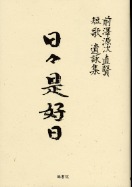 前澤 直賢
短歌 遺詠集
日々是好日